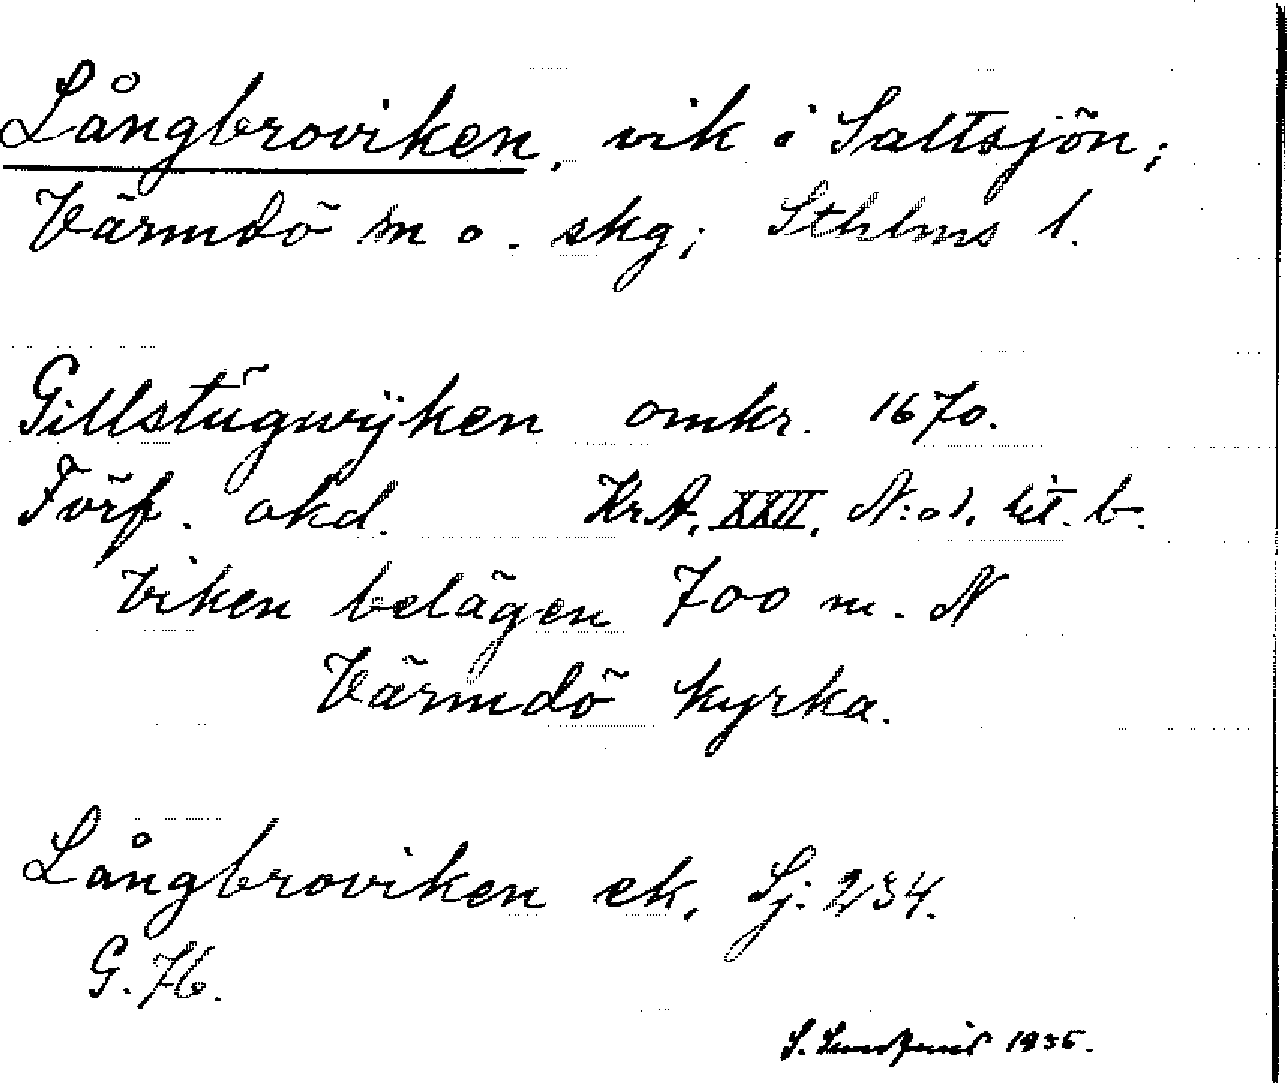 Långbroviken, vik i Saltsjön;
Värmdö sn o. skg; Sthlms l.
Gillstügwÿken omkr. 1670.
Förf. okd. KrA, XXII, N:o 1. lit. b.
Viken belägen 700 m. N
Värmdö kyrka.
Långbroviken ek. Sj: 234.
G. 76.
S. 1935.